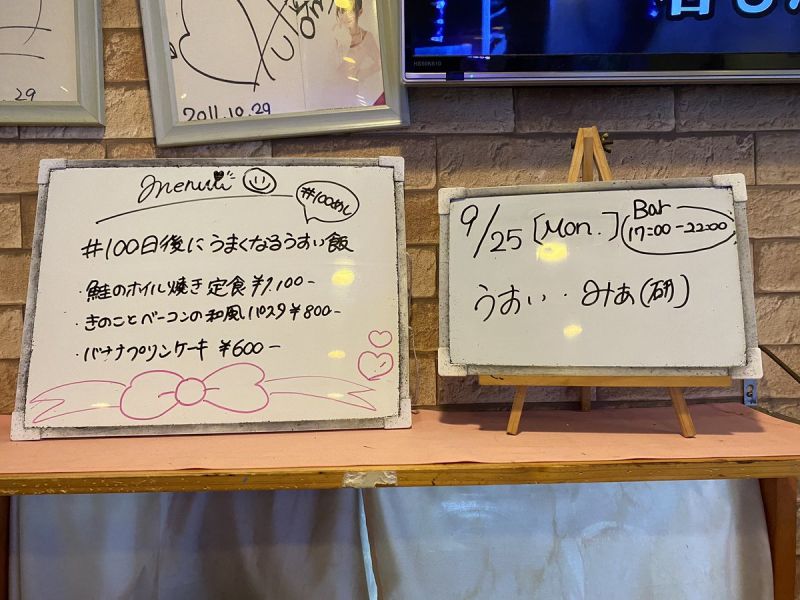 29
2011.10.29
HS50K610
Menuu
#100めし
#100日後にうまくなるうすい飯
・鮭のホイル焼き定食¥1,100-
・きのことベーコンの和風パスタ¥800-
・バナナプリンケーキ ¥600-
9/25 [Mon.]
Bar
17:00-22:00
うすい・みぁ(研)